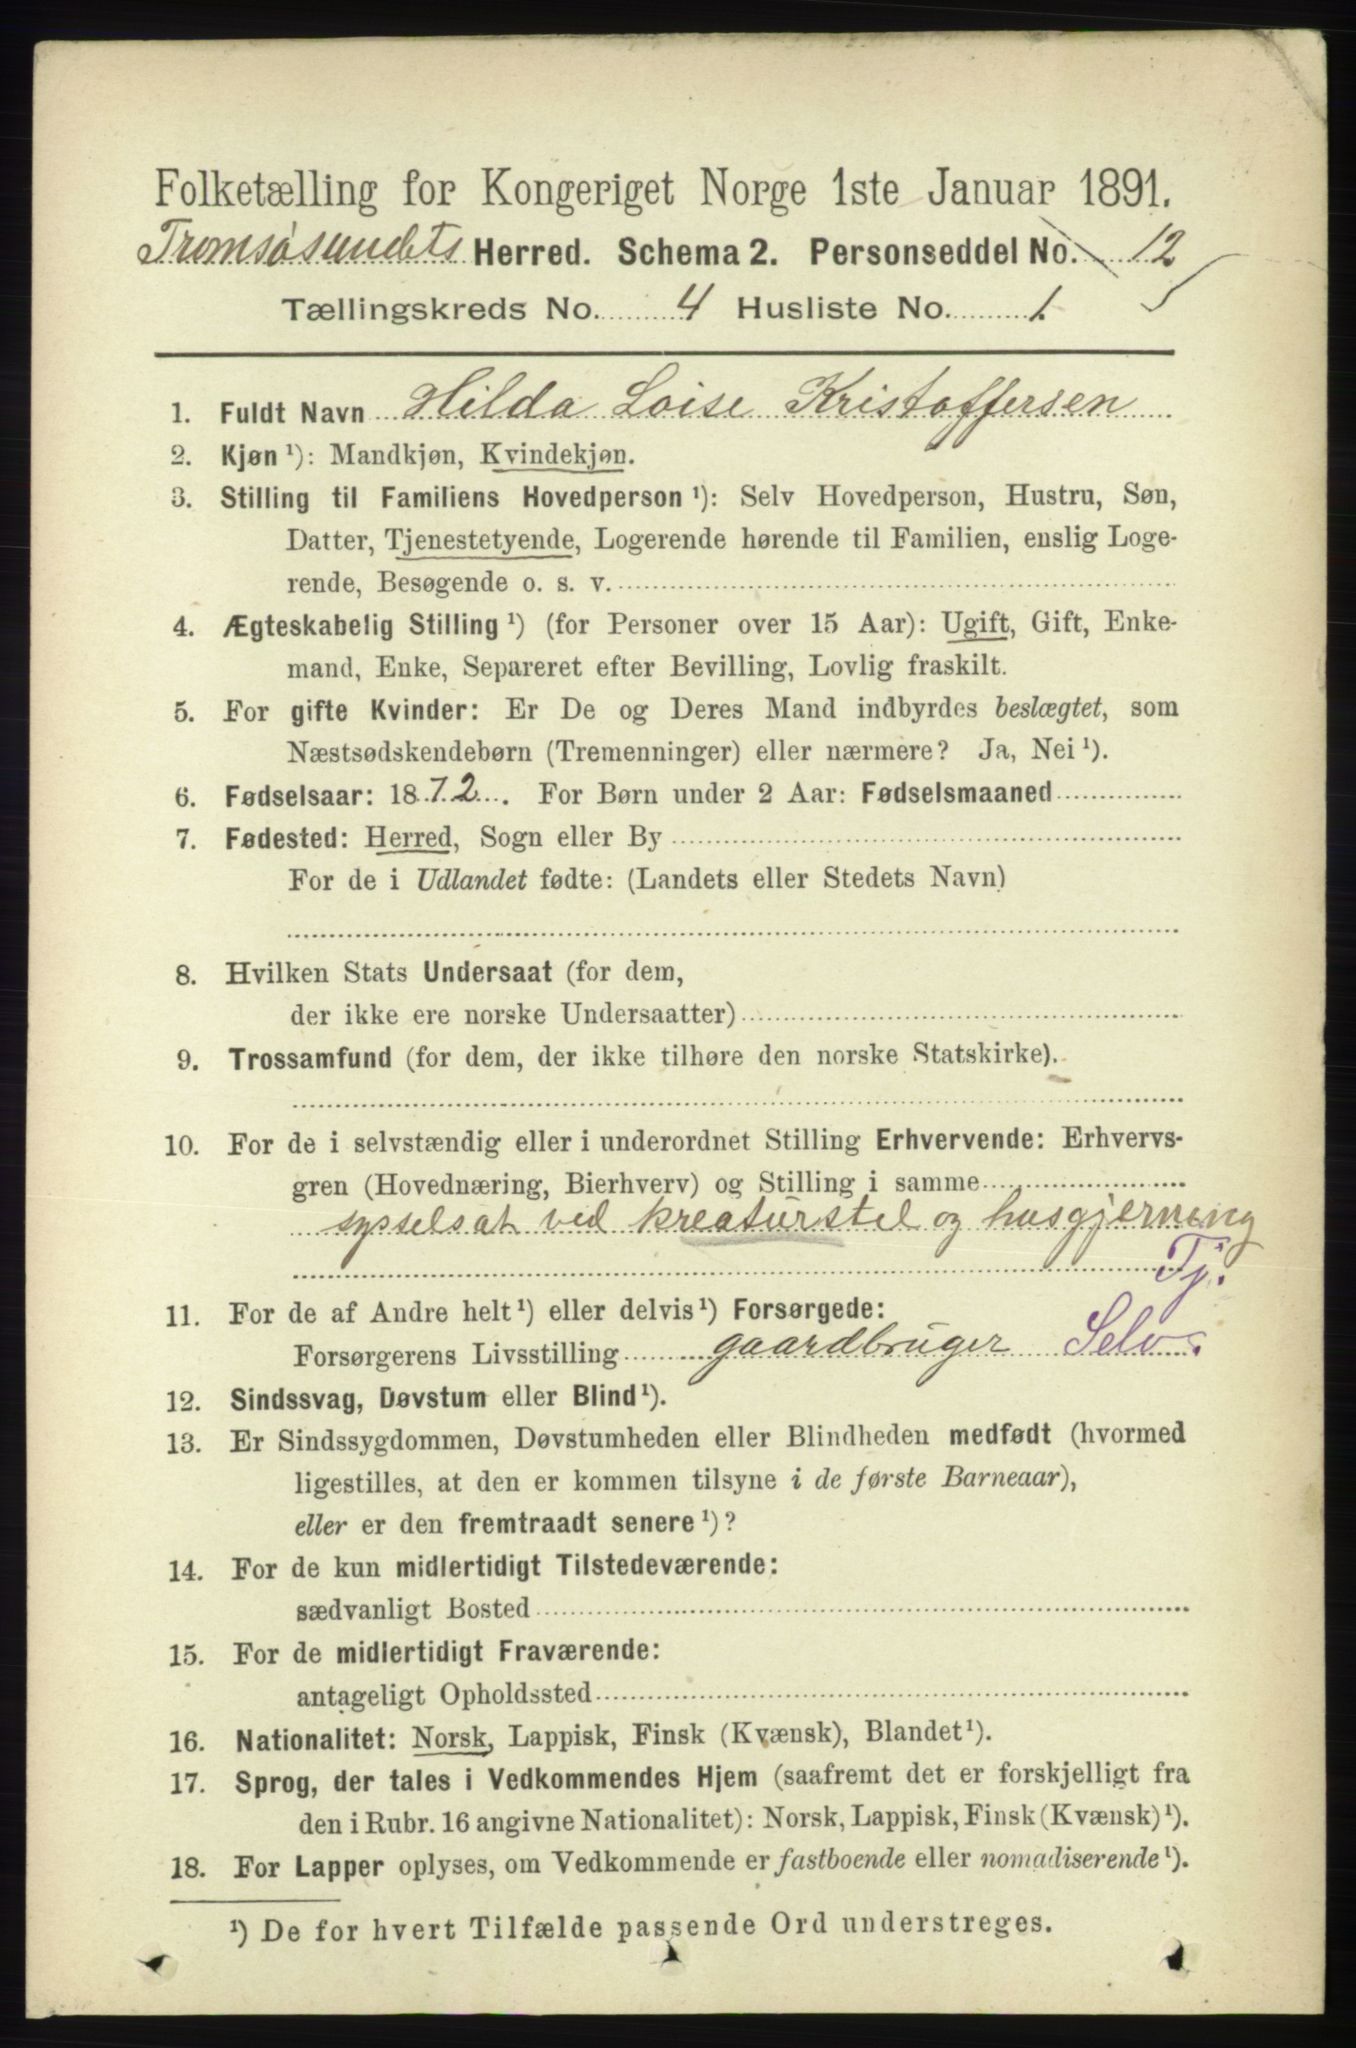 Folketælling for Kongeriget Norge 1ste Januar 1891.
Tromsøsundets Herred. Schema 2. Personseddel No. 12
Tællingskreds No. 4 Husliste No. 1.
1. Fuldt Navn Hilda Loise Kristoffersen
2. Kjøn ¹): Mandkjøn, Kvindekjøn.
3. Stilling til Familiens Hovedperson ¹): Selv Hovedperson, Hustru, Søn,
Datter, Tjenestetyende, Logerende hørende til Familien, enslig Loge-
rende, Besøgende o. s. v.
4. Ægteskabelig Stilling ¹) (for Personer over 15 Aar): Ugift, Gift, Enke-
mand, Enke, Separeret efter Bevilling, Lovlig fraskilt.
5. For gifte Kvinder: Er De og Deres Mand indbyrdes beslægtet, som
Næstsødskendebørn (Tremenninger) eller nærmere? Ja, Nei ¹).
6. Fødselsaar: 1872. For Børn under 2 Aar: Fødselsmaaned
7. Fødested: Herred, Sogn eller By
For de i Udlandet fødte: (Landets eller Stedets Navn)
8. Hvilken Stats Undersaat (for dem,
der ikke ere norske Undersaatter)
9. Trossamfund (for dem, der ikke tilhøre den norske Statskirke).
10. For de i selvstændig eller i underordnet Stilling Erhvervende: Erhvervs-
gren (Hovednæring, Bierhverv) og Stilling i samme
sysselsat ved kreaturstel og husgjerning
Tj.
11. For de af Andre helt ¹) eller delvis ¹) Forsørgede:
Forsørgerens Livsstilling gaardbruger Selv.
12. Sindssvag, Døvstum eller Blind ¹).
13. Er Sindssygdommen, Døvstumheden eller Blindheden medfødt (hvormed
ligestilles, at den er kommen tilsyne i de første Barneaar),
eller er den fremtraadt senere ¹)?
14. For de kun midlertidigt Tilstedeværende:
sædvanligt Bosted
15. For de midlertidigt Fraværende:
antageligt Opholdssted
16. Nationalitet: Norsk, Lappisk, Finsk (Kvænsk), Blandet ¹).
17. Sprog, der tales i Vedkommendes Hjem (saafremt det er forskjelligt fra
den i Rubr. 16 angivne Nationalitet): Norsk, Lappisk, Finsk (Kvænsk) ¹).
18. For Lapper oplyses, om Vedkommende er fastboende eller nomadiserende ¹).
¹) De for hvert Tilfælde passende Ord understreges.